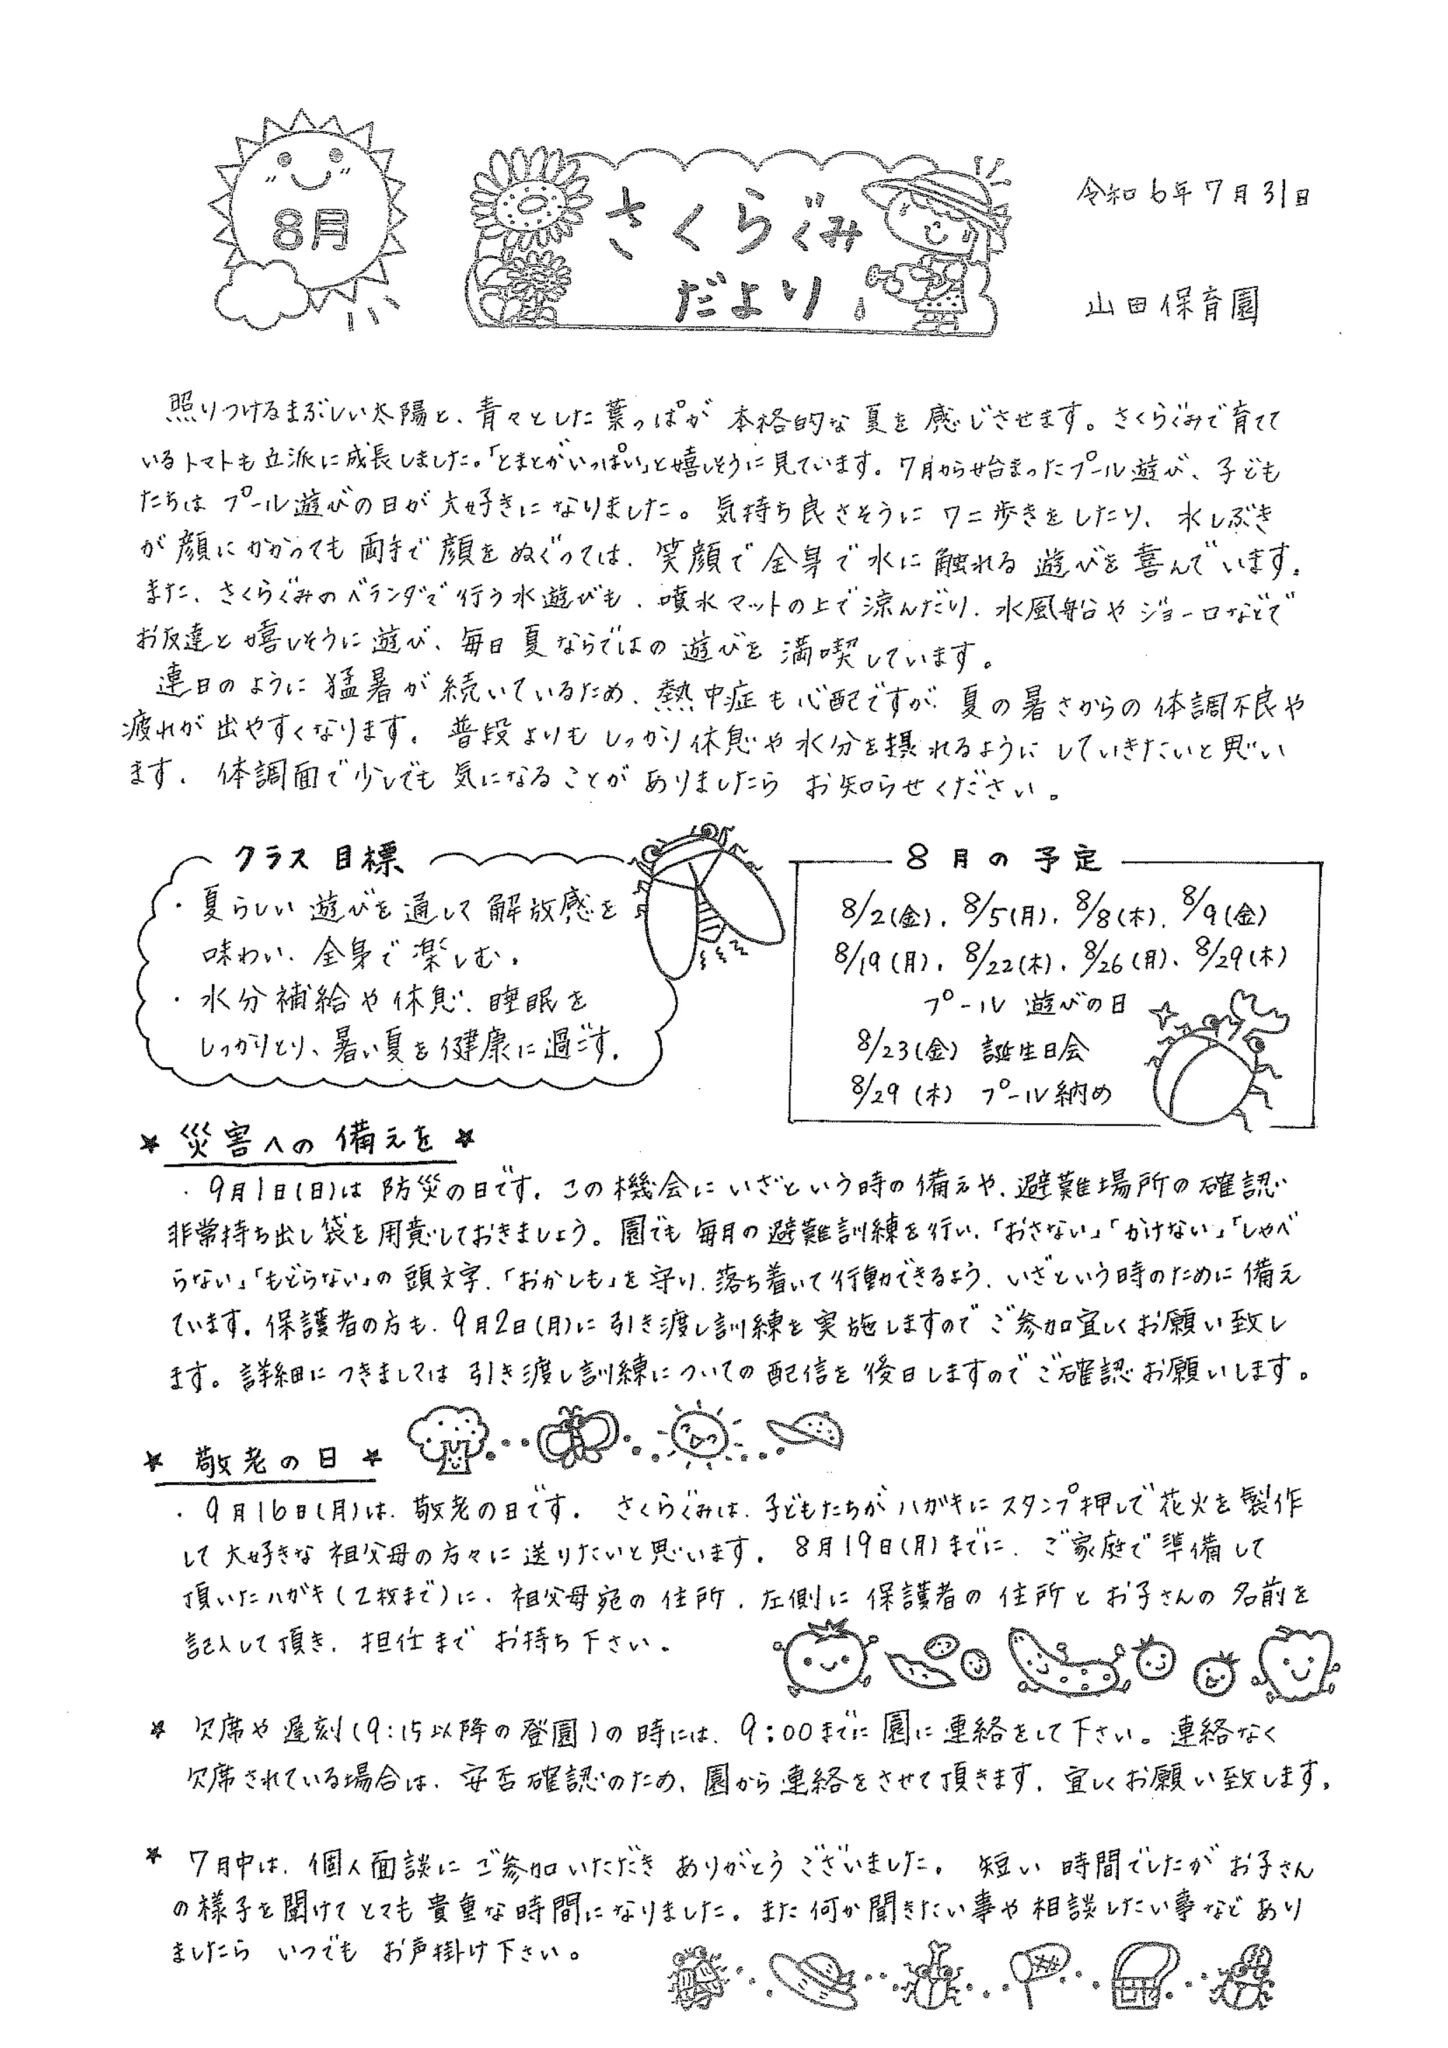 8月
さくらぐみ
だより
令和6年7月31日
山田保育園
照りつけるまぶしい太陽と、青々とした葉っぱが本格的な夏を感じさせます。さくらぐみで育てて
いるトマトも立派に成長しました。「とまとがいっぱい」と嬉しそうに見ています。7月から始まったプール遊び、子ども
たちはプール遊びの日が大好きになりました。気持ち良さそうにワニ歩きをしたり、水しぶき
が顔にかかっても両手で顔をぬぐっては、笑顔で全身で水に触れる遊びを喜んでいます。
また、さくらぐみのベランダで行う水遊びも、噴水マットの上で涼んだり、水風船やジョーロなどで
お友達と嬉しそうに遊び、毎日夏ならではの遊びを満喫しています。
連日のように猛暑が続いているため、熱中症も心配ですが、夏の暑さからの体調不良や
疲れが出やすくなります。普段よりもしっかり休息や水分を摂れるようにしていきたいと思い
ます。体調面で少しでも気になることがありましたらお知らせください。
クラス目標
・夏らしい遊びを通して解放感を
味わい、全身で楽しむ。
・水分補給や休息、睡眠を
しっかりとり、暑い夏を健康に過ごす。
8月の予定
8/2(金)、8/5(月)、8/8(木)、8/9(金)
8/19(月)、8/22(木)、8/26(月)、8/29(木)
プール遊びの日
8/23(金) 誕生日会
8/29(木) プール納め
★災害への備えを★
・9月1日(日)は防災の日です。この機会にいざという時の備えや、避難場所の確認、
非常持ち出し袋を用意しておきましょう。園でも毎月の避難訓練を行い、「おさない」「かけない」「しゃべ
らない」「もどらない」の頭文字、「おかしも」を守り、落ち着いて行動できるよう、いざという時のために備え
ています。保護者の方も、9月2日(月)に引き渡し訓練を実施しますのでご参加宜しくお願い致し
ます。詳細につきましては引き渡し訓練についての配信を後日しますのでご確認お願いします。
★敬老の日★
・9月16日(月)は、敬老の日です。さくらぐみは、子どもたちがハガキにスタンプ押しで花火を製作
して大好きな祖父母の方々に送りたいと思います。8月19日(月)までに、ご家庭で準備して
頂いたハガキ(2枚まで)に、祖父母宛の住所、左側に保護者の住所とお子さんの名前を
記入して頂き、担任までお持ち下さい。
★欠席や遅刻(9:15以降の登園)の時には、9:00までに園に連絡をして下さい。連絡なく
欠席されている場合は、安否確認のため、園から連絡をさせて頂きます。宜しくお願い致します。
★7月中は、個人面談にご参加いただきありがとうございました。短い時間でしたがお子さん
の様子を聞けてとても貴重な時間になりました。また何か聞きたい事や相談したい事などあり
ましたらいつでもお声掛け下さい。